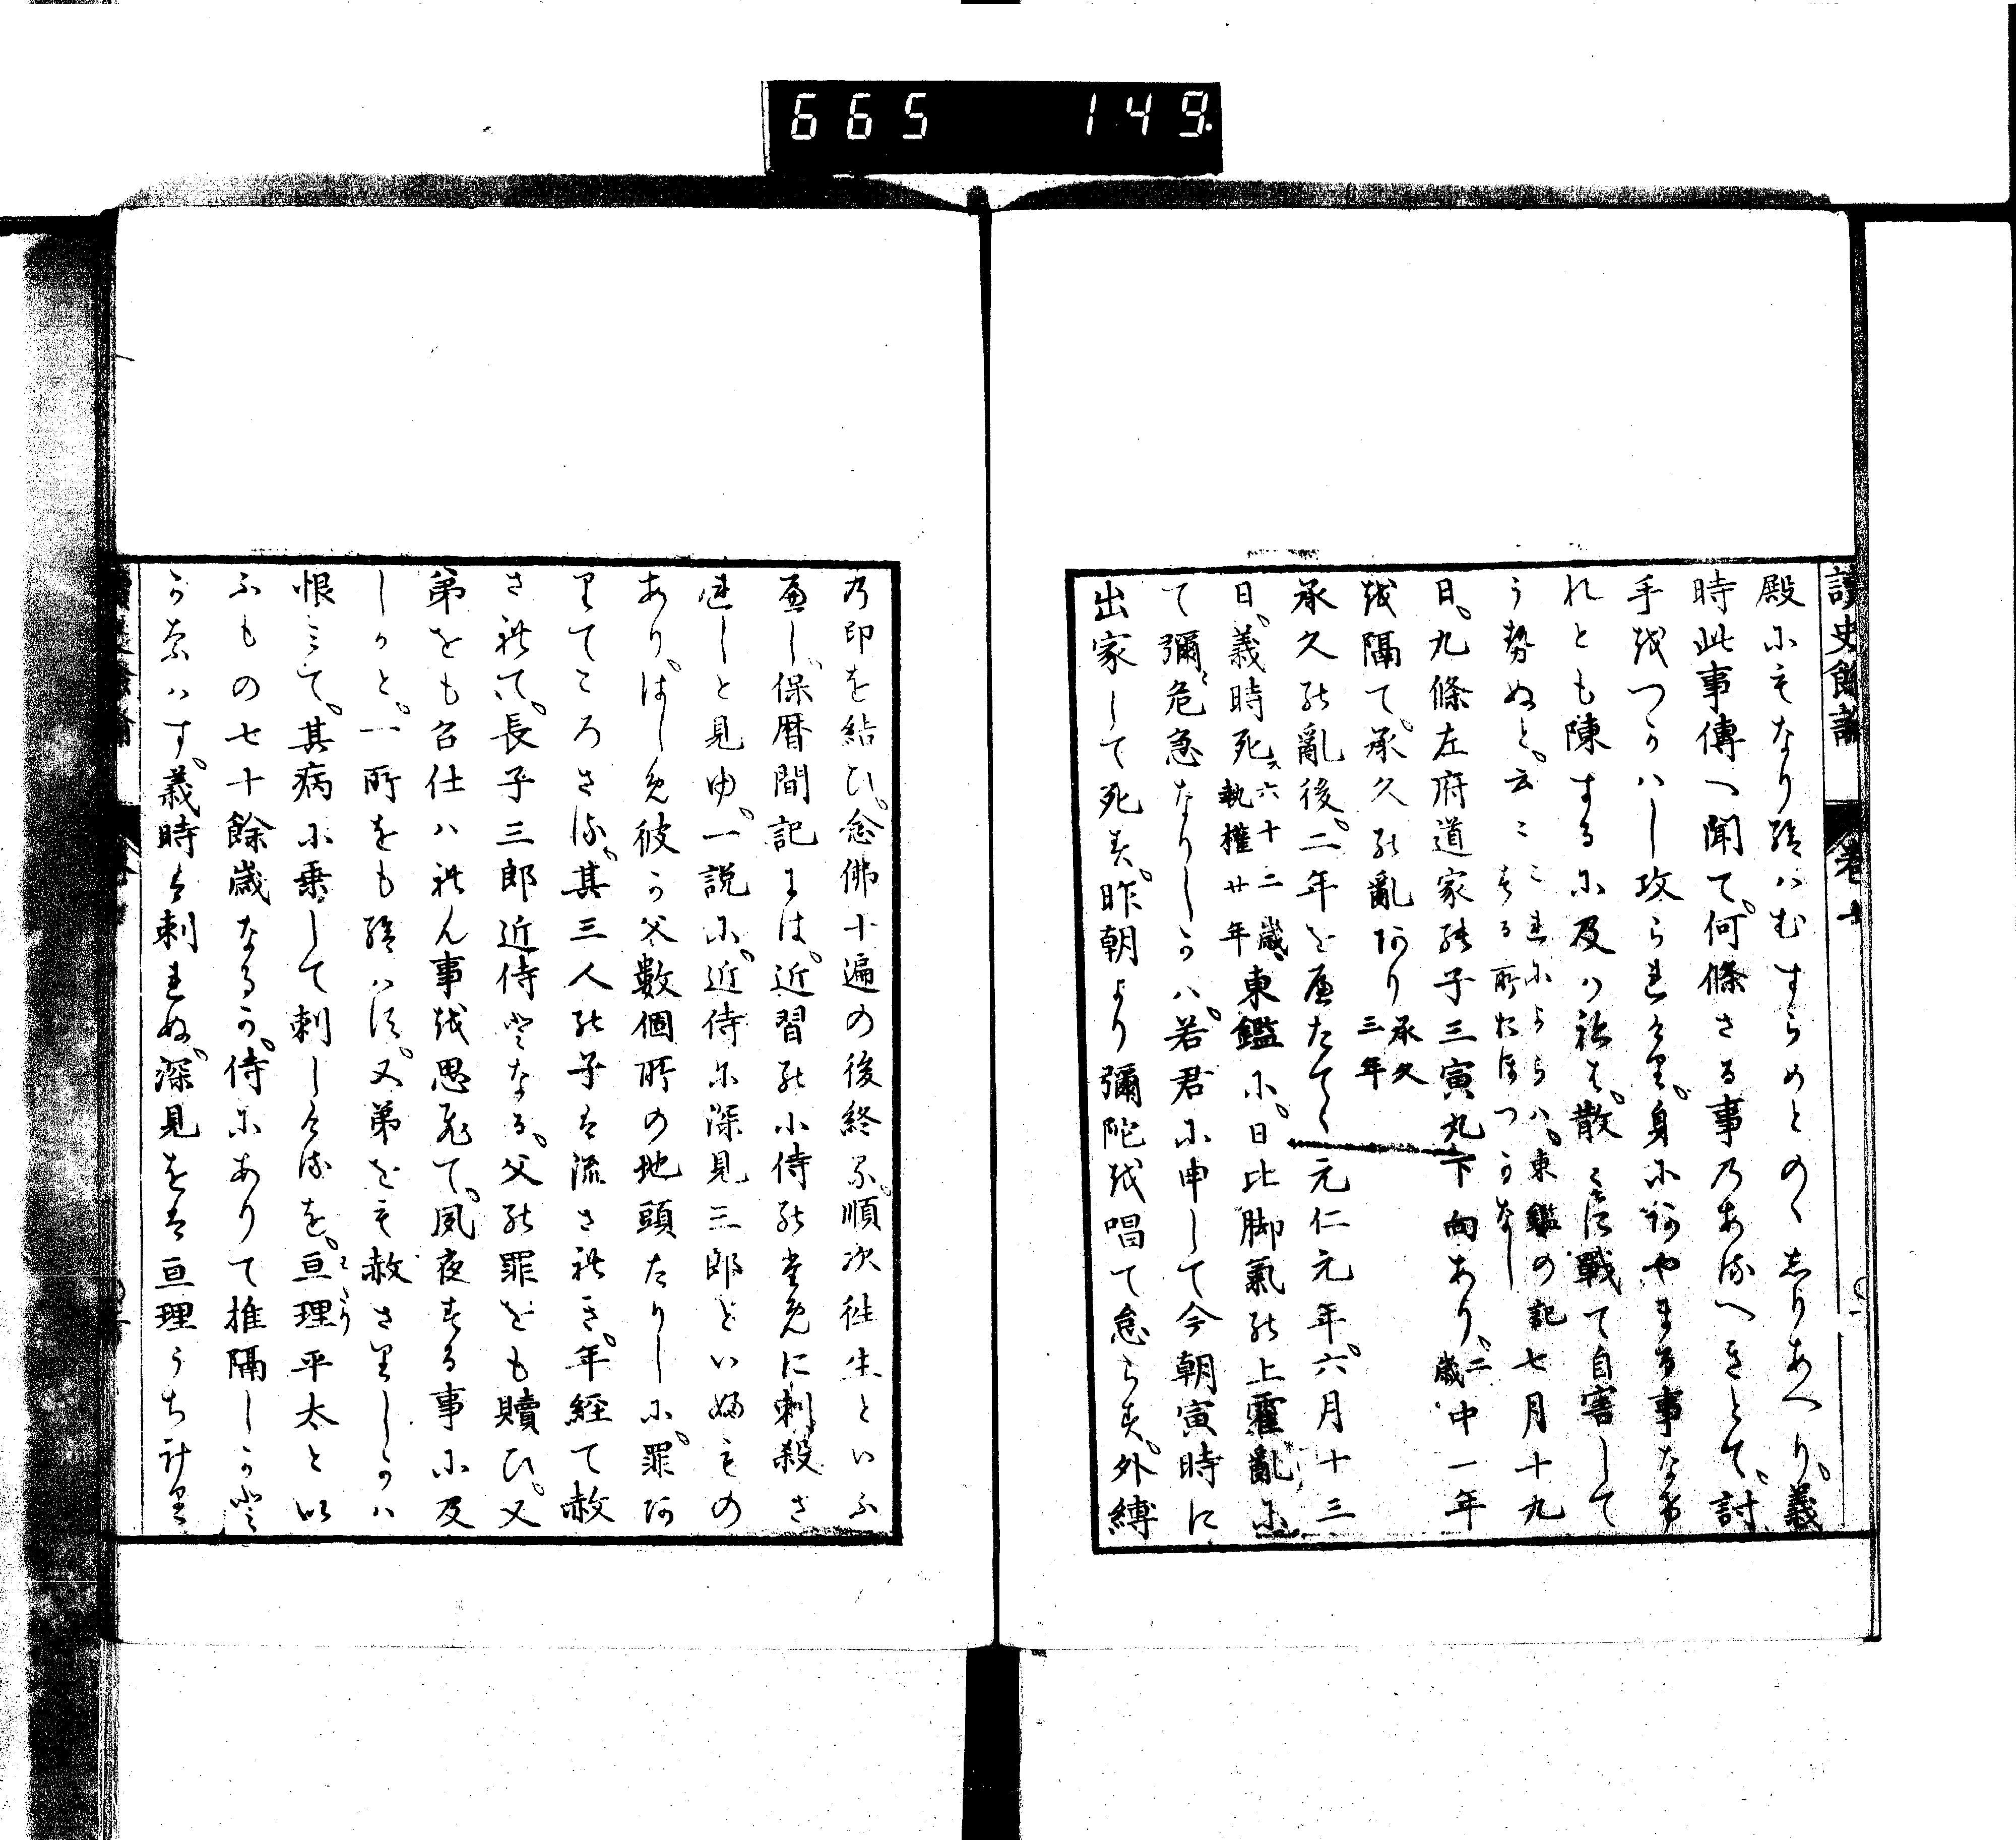 665 149.
讀史餘論 卷十
殿にもなり給はむすらめとのゝしりあへり。義
時此事傳へ聞て。何條さる事のあるへきとて。討
手をつかはし攻られけり。身にあやまる事なけ
れとも陳するに及はねは。散々に戰て自害して
うせぬと。云々これによらは。東鑑の記する所おほつかなし七月十九
日。九條左府道家の子三寅丸下向あり。二歳中一年
を隔て。承久の亂あり承久三年
承久の亂後。二年をへたてゝ元仁元年。六月十三
日。義時死ス六十二歳。執權廿年東鑑に。日比脚氣の上霍亂に
て彌〻危急なりしかは。若君に申して今朝寅時に
出家して死す。昨朝より彌陀を唱て怠らす。外縛
の印を結ひ。念佛十遍の後終る。順次往生といふ
へし。保暦間記には。近習の小侍の爲に刺殺さ
れしと見ゆ。一説に。近侍に深見三郎といふもの
あり。はしめ彼か父數個所の地頭たりしに。罪あ
りてころさる。其三人の子は流されき。年経て赦
されて。長子三郎近侍となる。父の罪をも贖ひ。又
弟をも召仕はれん事を思ひて。夙夜する事に及
しかと。一所をも給はす。又弟をも赦さりしかは
恨みて。其病に乗して刺しけるを。亘理わたり平太とい
ふもの七十餘歳なるか。侍にありて推隔しかと
かなはす。義時は刺れぬ。深見をは亘理うち訃り